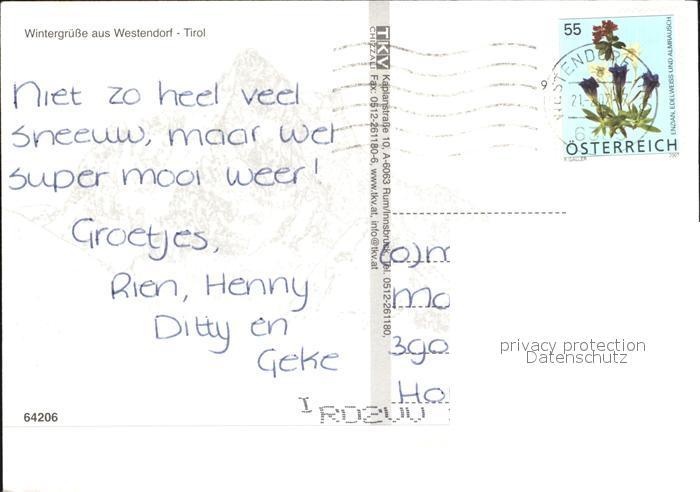 Wintergrüße aus Westendorf - Tirol
Niet zo heel veel
sneeuw, maar wel
super mooi weer!
Groetjes,
Rien, Henny
Ditty en
Geke
64206
TKV
CHIZZALI
Kaplanstraße 10, A-6063 Rum/Innsbruck, Tel. 0512-261180,
Fax: 0512-261180-6, www.tkv.at, info@tkv.at
55
ENZIAN, EDELWEISS UND ALMRAUSCH
ÖSTERREICH
R. GALLER 2007
privacy protection
Datenschutz